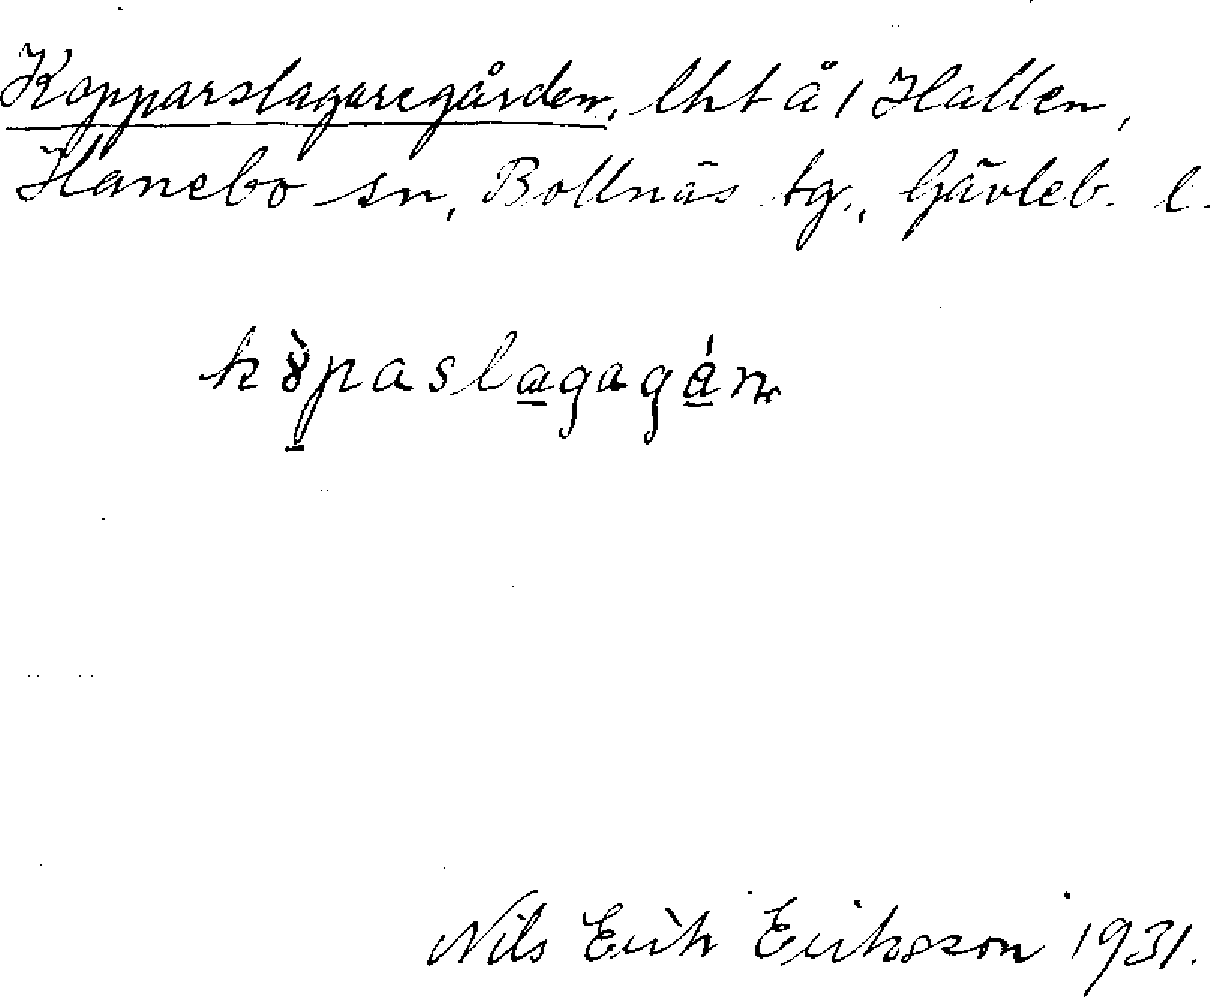 Kopparslagaregården, lht å 1 Hallen,
Hanebo sn, Bollnäs tg., Gävleb. l.
kòpaslagagán
Nils Erik Eriksson 1931.